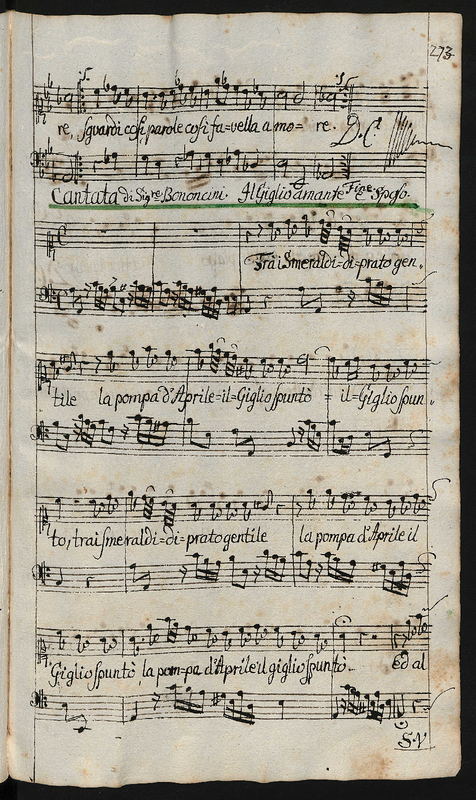 273
re, sguardi così, parole così fa=vella amo= re. D.C.
Fine.
Cantata di Sigre. Bononcini. Il Giglio amante e Sposo.
Trai Smeraldi=di=prato gen.
tile la pompa d'Aprile=il=Giglio spuntò = il=Giglio spun=
to, trai smeraldi=di=prato gentile la pompa d'Aprile il
Giglio spuntò, la pom=pa d'Aprile il giglio spuntò. ed al
S.V